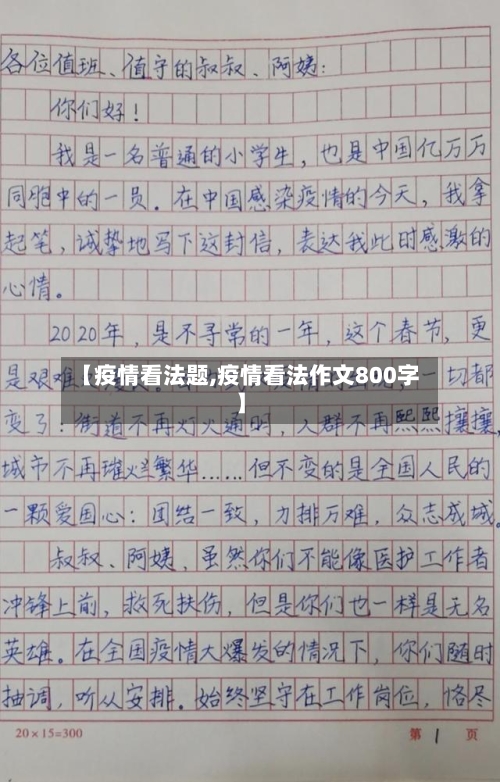 各位值班、值守的叔叔、阿姨:
你们好!
我是一名普通的小学生,也是中国亿万万
同胞中的一员。在中国感染疫情的今天,我拿
起笔,诚挚地写下这封信,表达我此时感激的
心情。
2020年,是不寻常的一年,这个春节,更
是艰难 一切都
【疫情看法题,疫情看法作文800字
】
变了:街道不再灯火通明,人群不再熙熙攘攘,
城市不再璀烂繁华……但不变的是全国人民的
一颗爱国心:团结一致,力排万难,众志成城。
叔叔、阿姨,虽然你们不能像医护工作者
冲锋上前,救死扶伤,但是你们也一样是无名
英雄。在全国疫情大爆发的情况下,你们随时
抽调,听从安排。始终坚守在工作岗位,恪尽
20×15=300 第 1 页